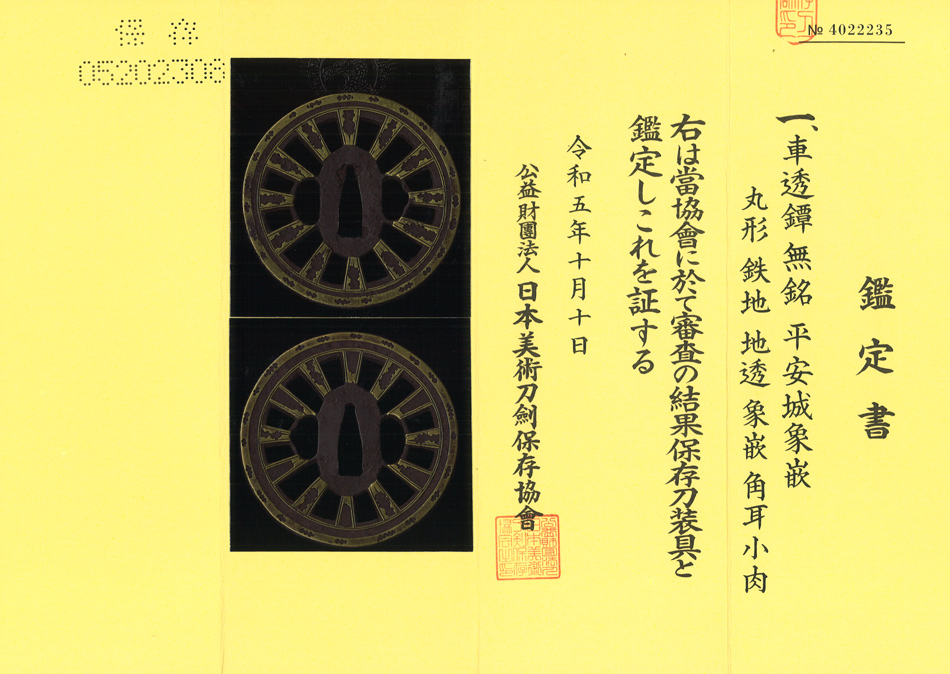 № 4022235
鑑定書
一、車透鐔 無銘 平安城象嵌
丸形 鉄地 地透 象嵌 角耳小肉
右は當協會に於て審査の結果保存刀装具と
鑑定しこれを証する
令和五年十月十日
公益財團法人 日本美術刀劍保存協會
保存
05202308